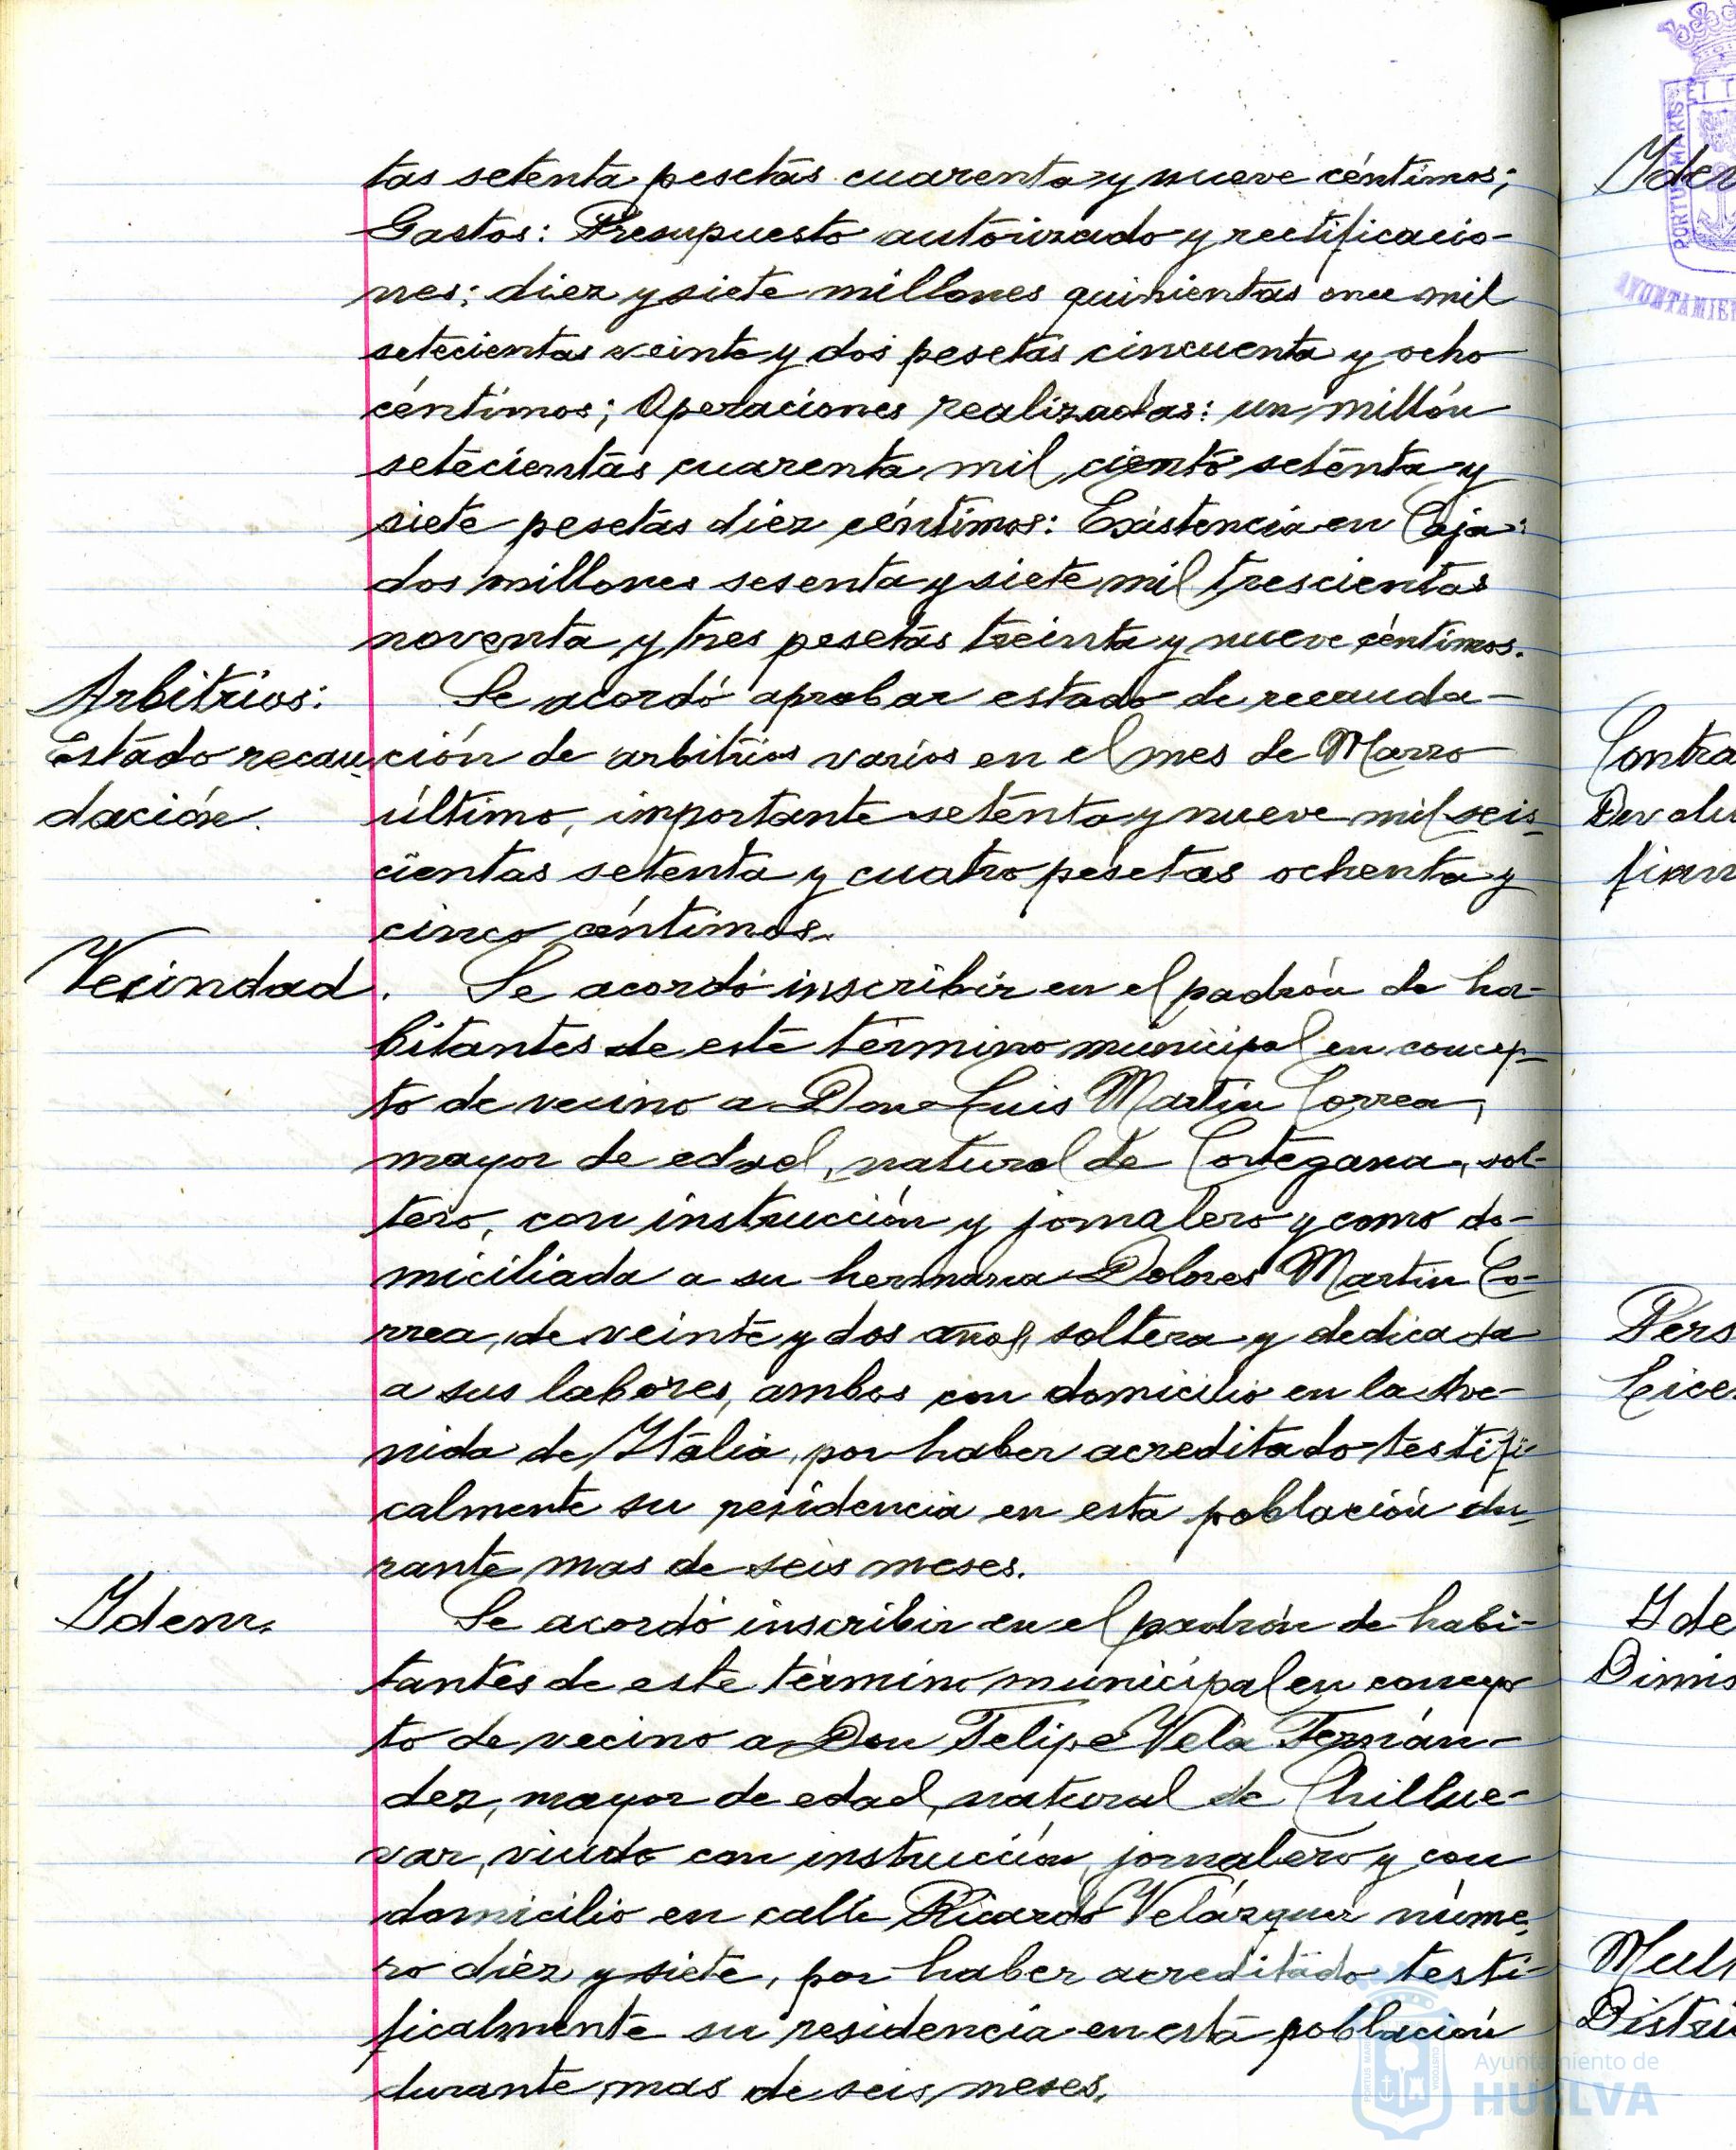 tas setenta pesetas cuarenta y nueve céntimos;
Gastos: Presupuesto autorizado y rectificacio-
nes: diez y siete millones quinientas once mil
setecientas veinte y dos pesetas cincuenta y ocho
céntimos; Operaciones realizadas: un millón
setecientas cuarenta mil ciento setenta y
siete pesetas diez céntimos: Existencia en Caja:
dos millones sesenta y siete mil trescientas
noventa y tres pesetas treinta y nueve céntimos.
Arbitrios:
Estado recau-
dación.
Se acordó aprobar estado de recauda-
ción de arbitrios varios en el mes de Marzo
último, importante setenta y nueve mil seis-
cientas setenta y cuatro pesetas ochenta y
cinco céntimos.
Vecindad.
Se acordó inscribir en el padrón de ha-
bitantes de este término municipal en concep-
to de vecino a Don Luis Martin Correa,
mayor de edad, natural de Cortegana, sol-
tero, con instrucción y jornalero y como do-
miciliada a su hermana Dolores Martin Co-
rrea, de veinte y dos años, soltera y dedicada
a sus labores, ambos con domicilio en la Ave-
nida de Italia, por haber acreditado testifi-
calmente su residencia en esta población du-
rante mas de seis meses.
Idem.
Se acordó inscribir en el padrón de habi-
tantes de este término municipal en concep-
to de vecino a Don Felipe Vela Fernán-
dez, mayor de edad, natural de Chillue-
var, viudo con instrucción, jornalero y con
domicilio en calle Ricardo Velázquez núme-
ro diez y siete, por haber acreditado testi-
ficalmente su residencia en esta población
durante mas de seis meses.
Iden
Contra
Devolu
fian
Pers
Licen
Ide
Dimis
Mult
Distri
PORTUS MARIS
ET T
AYUNTAMIEN
Ayuntamiento de
HUELVA